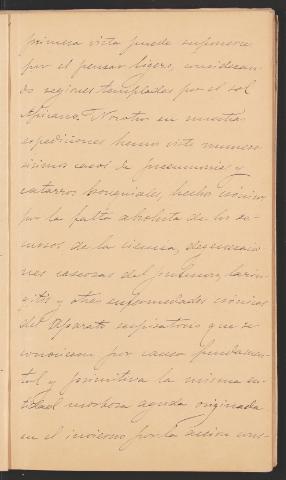 primera vista puede suponerse
por el pensar ligero, consideran-
do regiones templadas por el sol
Africano. Nosotros en nuestras
espediciones hemos visto numero-
sisimos casos de pneumonias y
catarros bronquiales, hechos crónicos
por la falta absoluta de los re-
cursos de la ciencia, degeneracio-
nes caseosas del pulmon, larin-
gitis y otras enfermedades crónicas
del Aparato respiratorio que re-
conocieron por causa fundamen-
tal y primitiva la misma en-
tidad morbosa aguda originada
en el invierno por la accion cons-